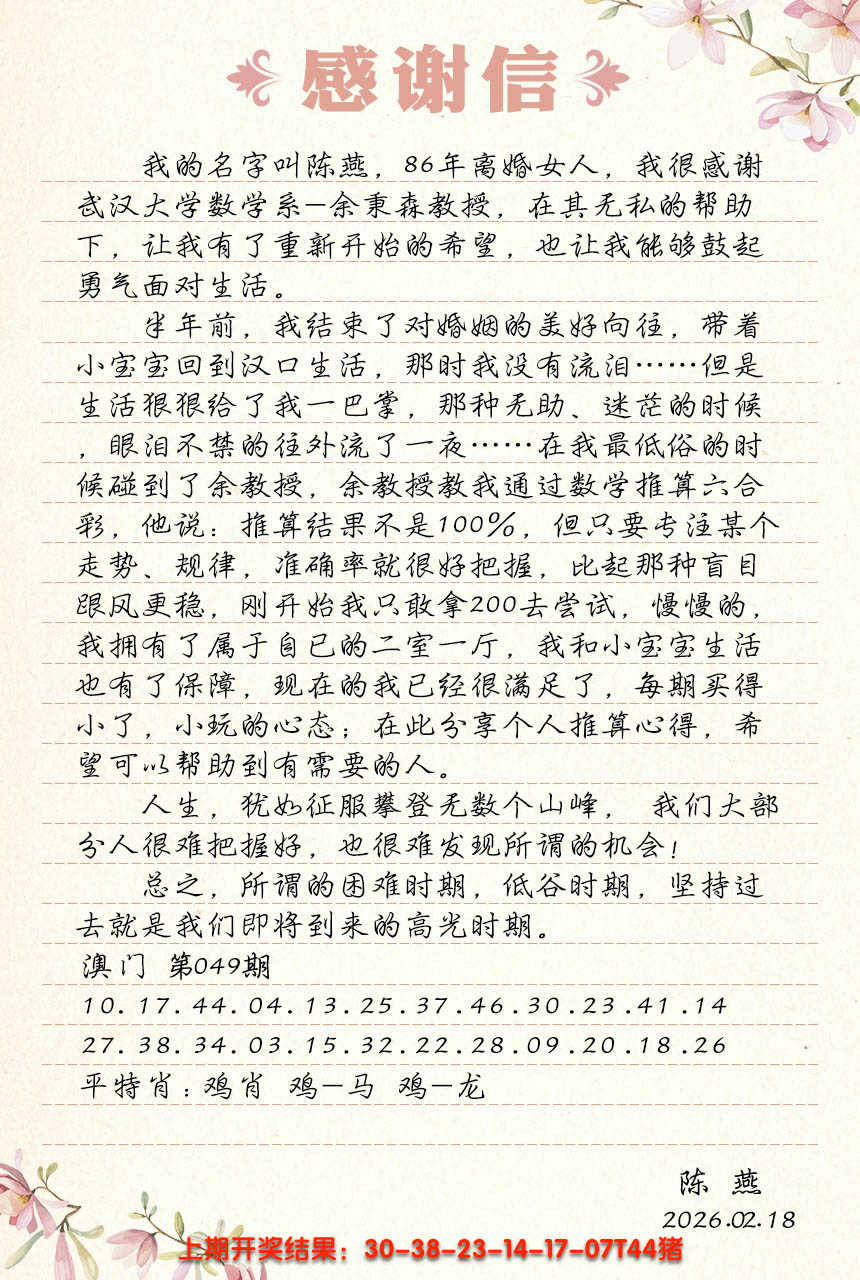 感谢信
我的名字叫陈燕，86年离婚女人，我很感谢
武汉大学数学系—余秉森教授，在其无私的帮助
下，让我有了重新开始的希望，也让我能够鼓起
勇气面对生活。
半年前，我结束了对婚姻的美好向往，带着
小宝宝回到汉口生活，那时我没有流泪……但是
生活狠狠给了我一巴掌，那种无助、迷茫的时候
，眼泪不禁的往外流了一夜……在我最低俗的时
候碰到了余教授，余教授教我通过数学推算六合
彩，他说：推算结果不是100%，但只要专注某个
走势、规律，准确率就很好把握，比起那种盲目
跟风更稳，刚开始我只敢拿200去尝试，慢慢的，
我拥有了属于自已的二室一厅，我和小宝宝生活
也有了保障，现在的我已经很满足了，每期买得
小了，小玩的心态；在此分享个人推算心得，希
望可以帮助到有需要的人。
人生，犹如征服攀登无数个山峰， 我们大部
分人很难把握好，也很难发现所谓的机会！
总之，所谓的困难时期，低谷时期，坚持过
去就是我们即将到来的高光时期。
澳门 第049期
10.17.44.04.13.25.37.46.30.23.41.14
27.38.34.03.15.32.22.28.09.20.18.26
平特肖：鸡肖 鸡—马 鸡—龙
陈 燕
2026.02.18
上期开奖结果：30-38-23-14-17-07T44猪